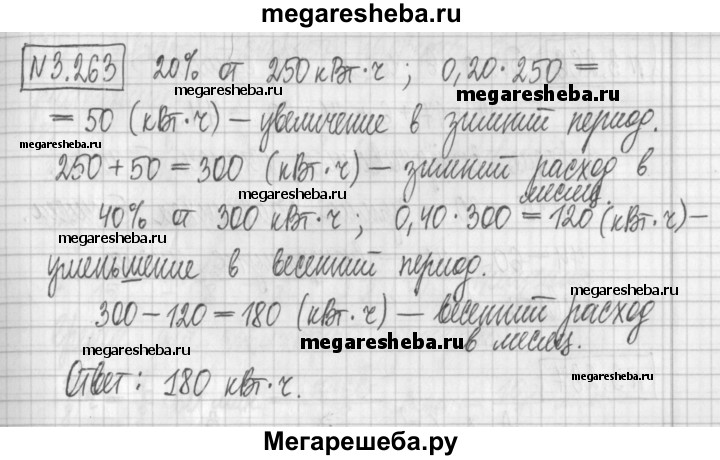 megaresheba.ru
№3.263 20% от 250 кВт·ч ; 0,20·250 =
megaresheba.ru
= 50 (кВт·ч) – увеличение в зимний период.
megaresheba.ru
250 + 50 = 300 (кВт·ч) – зимний расход в
месяц.
megaresheba.ru
40% от 300 кВт·ч ; 0,40·300 = 120 (кВт·ч) –
megaresheba.ru
уменьшение в весенний период.
megaresheba.ru
300 – 120 = 180 (кВт·ч) – весенний расход
в месяц.
megaresheba.ru
megaresheba.ru
Ответ: 180 кВт·ч.
megaresheba.ru
Мегарешеба.ру